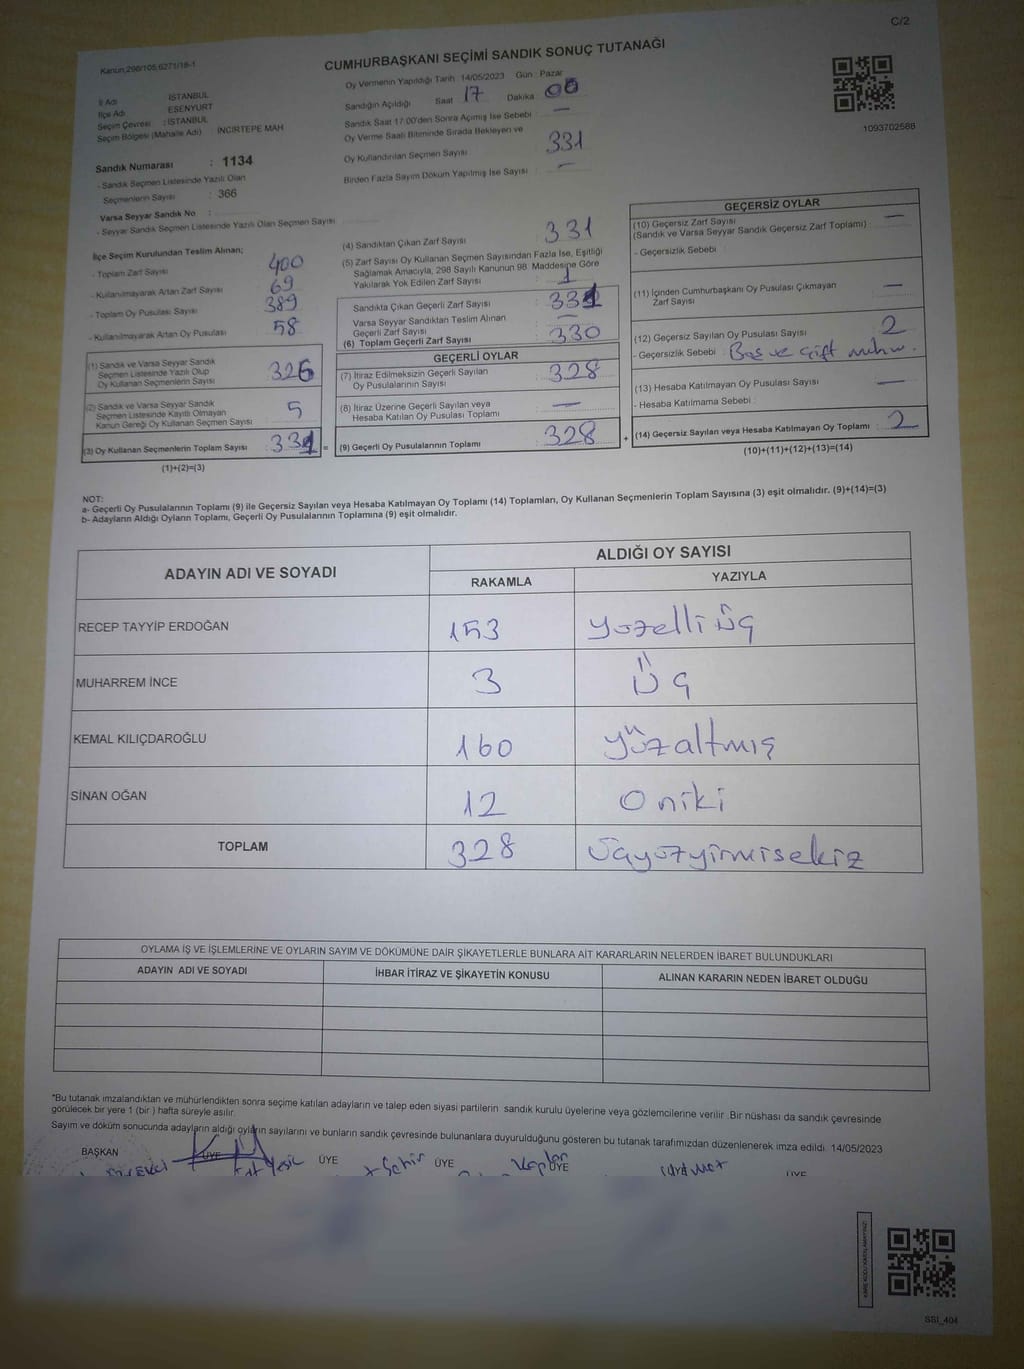 C/2
Kanun,298/105;6271/18-1
CUMHURBAŞKANI SEÇİMİ SANDIK SONUÇ TUTANAĞI
İl Adı : İSTANBUL
İlçe Adı : ESENYURT
Seçim Çevresi : İSTANBUL
Seçim Bölgesi (Mahalle Adı) : İNCİRTEPE MAH
Sandık Numarası : 1134
- Sandık Seçmen Listesinde Yazılı Olan
Seçmenlerin Sayısı : 366
Varsa Seyyar Sandık No :
- Seyyar Sandık Seçmen Listesinde Yazılı Olan Seçmen Sayısı
Oy Vermenin Yapıldığı Tarih : 14/05/2023 Gün : Pazar
Sandığın Açıldığı Saat 17 Dakika 00
Sandık Saat 17:00'den Sonra Açımış İse Sebebi : —
Oy Verme Saati Bitiminde Sırada Bekleyen ve
Oy Kullandırılan Seçmen Sayısı 331
Birden Fazla Sayım Döküm Yapılmış İse Sayısı : —
1093702588
İlçe Seçim Kurulundan Teslim Alınan;
- Toplam Zarf Sayısı 400
- Kullanılmayarak Artan Zarf Sayısı 69
- Toplam Oy Pusulası Sayısı 389
- Kullanılmayarak Artan Oy Pusulası 58
(1) Sandık ve Varsa Seyyar Sandık
Seçmen Listesinde Yazılı Olup
Oy Kullanan Seçmenlerin Sayısı 326
(2) Sandık ve Varsa Seyyar Sandık
Seçmen Listesinde Kayıtlı Olmayan
Kanun Gereği Oy Kullanan Seçmen Sayısı 5
(3) Oy Kullanan Seçmenlerin Toplam Sayısı 331 =
(1)+(2)=(3)
(4) Sandıktan Çıkan Zarf Sayısı 331
(5) Zarf Sayısı Oy Kullanan Seçmen Sayısından Fazla İse, Eşitliği
Sağlamak Amacıyla, 298 Sayılı Kanunun 98. Maddesine Göre
Yakılarak Yok Edilen Zarf Sayısı : 1
Sandıkta Çıkan Geçerli Zarf Sayısı 331
Varsa Seyyar Sandıktan Teslim Alınan
Geçerli Zarf Sayısı —
(6) Toplam Geçerli Zarf Sayısı 330
GEÇERLİ OYLAR
(7) İtiraz Edilmeksizin Geçerli Sayılan
Oy Pusulalarının Sayısı 328
(8) İtiraz Üzerine Geçerli Sayılan veya
Hesaba Katılan Oy Pusulası Toplamı —
(9) Geçerli Oy Pusulalarının Toplamı 328 +
GEÇERSİZ OYLAR
(10) Geçersiz Zarf Sayısı —
(Sandık ve Varsa Seyyar Sandık Geçersiz Zarf Toplamı)
- Geçersizlik Sebebi :
(11) İçinden Cumhurbaşkanı Oy Pusulası Çıkmayan
Zarf Sayısı —
(12) Geçersiz Sayılan Oy Pusulası Sayısı 2
- Geçersizlik Sebebi : Boş ve çift mühür.
(13) Hesaba Katılmayan Oy Pusulası Sayısı —
- Hesaba Katılmama Sebebi :
(14) Geçersiz Sayılan veya Hesaba Katılmayan Oy Toplamı : 2
(10)+(11)+(12)+(13)=(14)
NOT:
a- Geçerli Oy Pusulalarının Toplamı (9) ile Geçersiz Sayılan veya Hesaba Katılmayan Oy Toplamı (14) Toplamları, Oy Kullanan Seçmenlerin Toplam Sayısına (3) eşit olmalıdır. (9)+(14)=(3)
b- Adayların Aldığı Oyların Toplamı, Geçerli Oy Pusulalarının Toplamına (9) eşit olmalıdır.
ADAYIN ADI VE SOYADI ALDIĞI OY SAYISI
RAKAMLA YAZIYLA
RECEP TAYYİP ERDOĞAN 153 yüzelli üç
MUHARREM İNCE 3 üç
KEMAL KILIÇDAROĞLU 160 yüzaltmış
SİNAN OĞAN 12 oniki
TOPLAM 328 üçyüzyirmisekiz
OYLAMA İŞ VE İŞLEMLERİNE VE OYLARIN SAYIM VE DÖKÜMÜNE DAİR ŞİKAYETLERLE BUNLARA AİT KARARLARIN NELERDEN İBARET BULUNDUKLARI
ADAYIN ADI VE SOYADI İHBAR İTİRAZ VE ŞİKAYETİN KONUSU ALINAN KARARIN NEDEN İBARET OLDUĞU
*Bu tutanak imzalandıktan ve mühürlendikten sonra seçime katılan adayların ve talep eden siyasi partilerin sandık kurulu üyelerine veya gözlemcilerine verilir. Bir nüshası da sandık çevresinde
görülecek bir yere 1 (bir ) hafta süreyle asılır.
Sayım ve döküm sonucunda adayların aldığı oyların sayılarını ve bunların sandık çevresinde bulunanlara duyurulduğunu gösteren bu tutanak tarafımızdan düzenlenerek imza edildi. 14/05/2023
BAŞKAN ÜYE ÜYE ÜYE ÜYE ÜYE
SSI_404